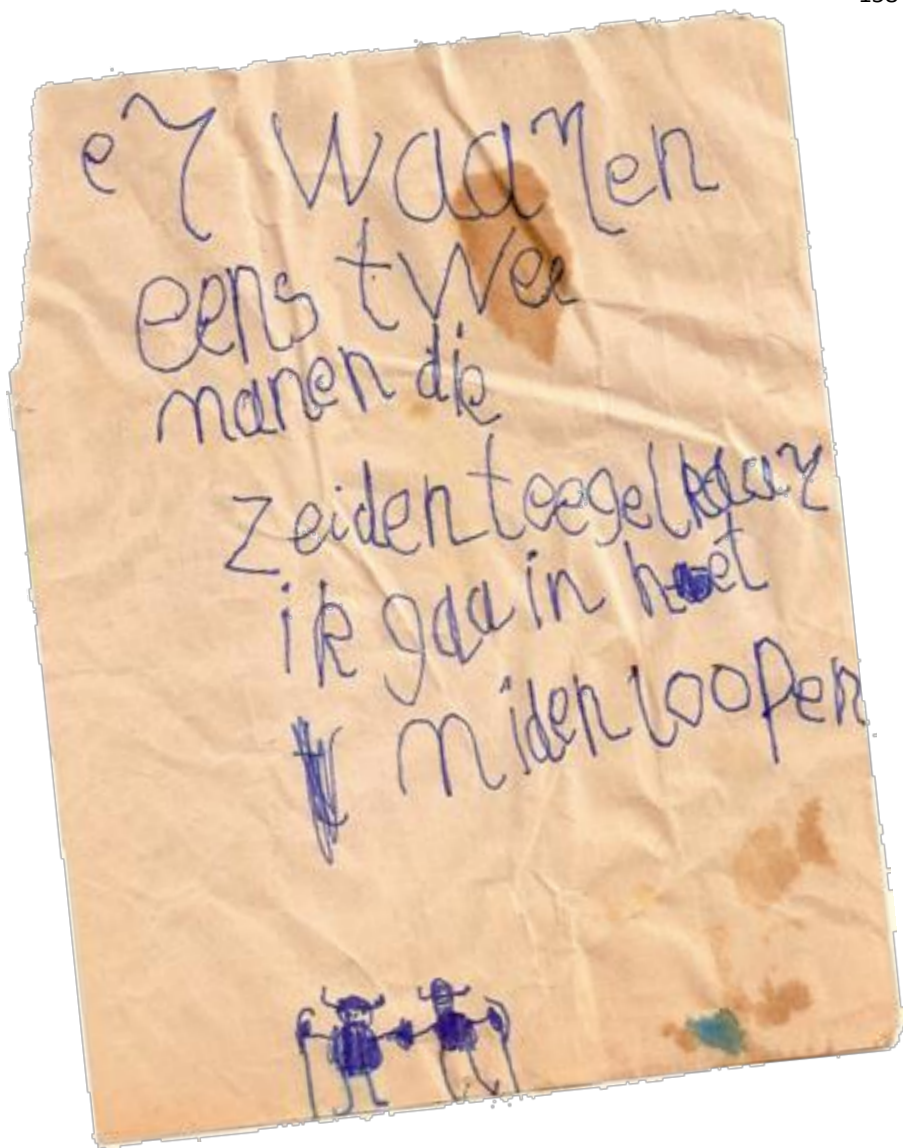 er waaren
eens twee
manen die
zeiden teegelkaar
ik gaa in het
miden loopen